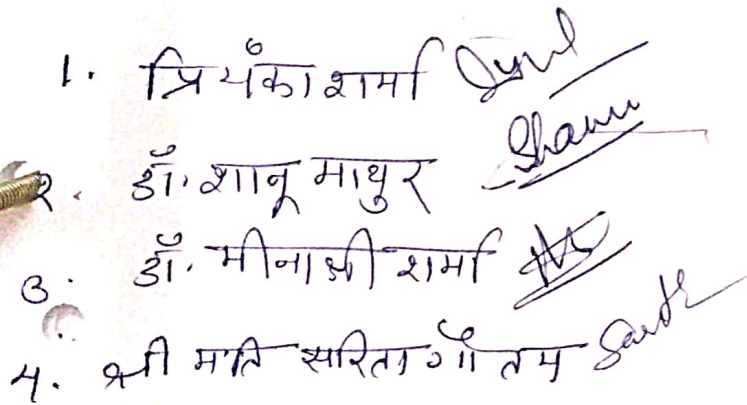 1. प्रियंका शर्मा
२. डॉ. शानू माथुर Shanu
3. डॉ. मीनाक्षी शर्मा
4. श्री मति सरिता गौतम